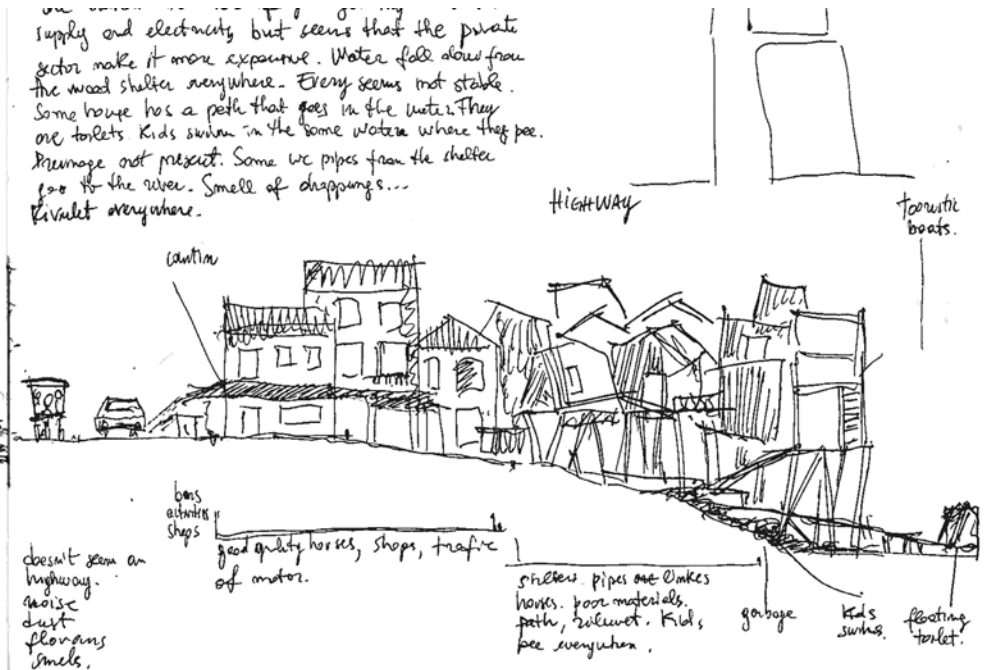 supply and electricity but seems that the private
sector make it more expensive. Water fall down from
the wood shelter everywhere. Every seems not stable.
Some house has a path that goes in the water. They
are toilets. Kids swim in the same water where they pee.
Dreinage not present. Some wc pipes from the shelter
goes to the river. Smell of droppings...
Rivulet everywhere.
HIGHWAY
touristic
boats.
cantin
bars
activities
shops
good quality houses, shops, trafic
of motor.
doesn't seem an
highway.
noise
dust
smels.
shelters. pipes
houses. poor materials.
path, Kids
pee everywhere.
garbage
Kids
swims.
floating
toilet.